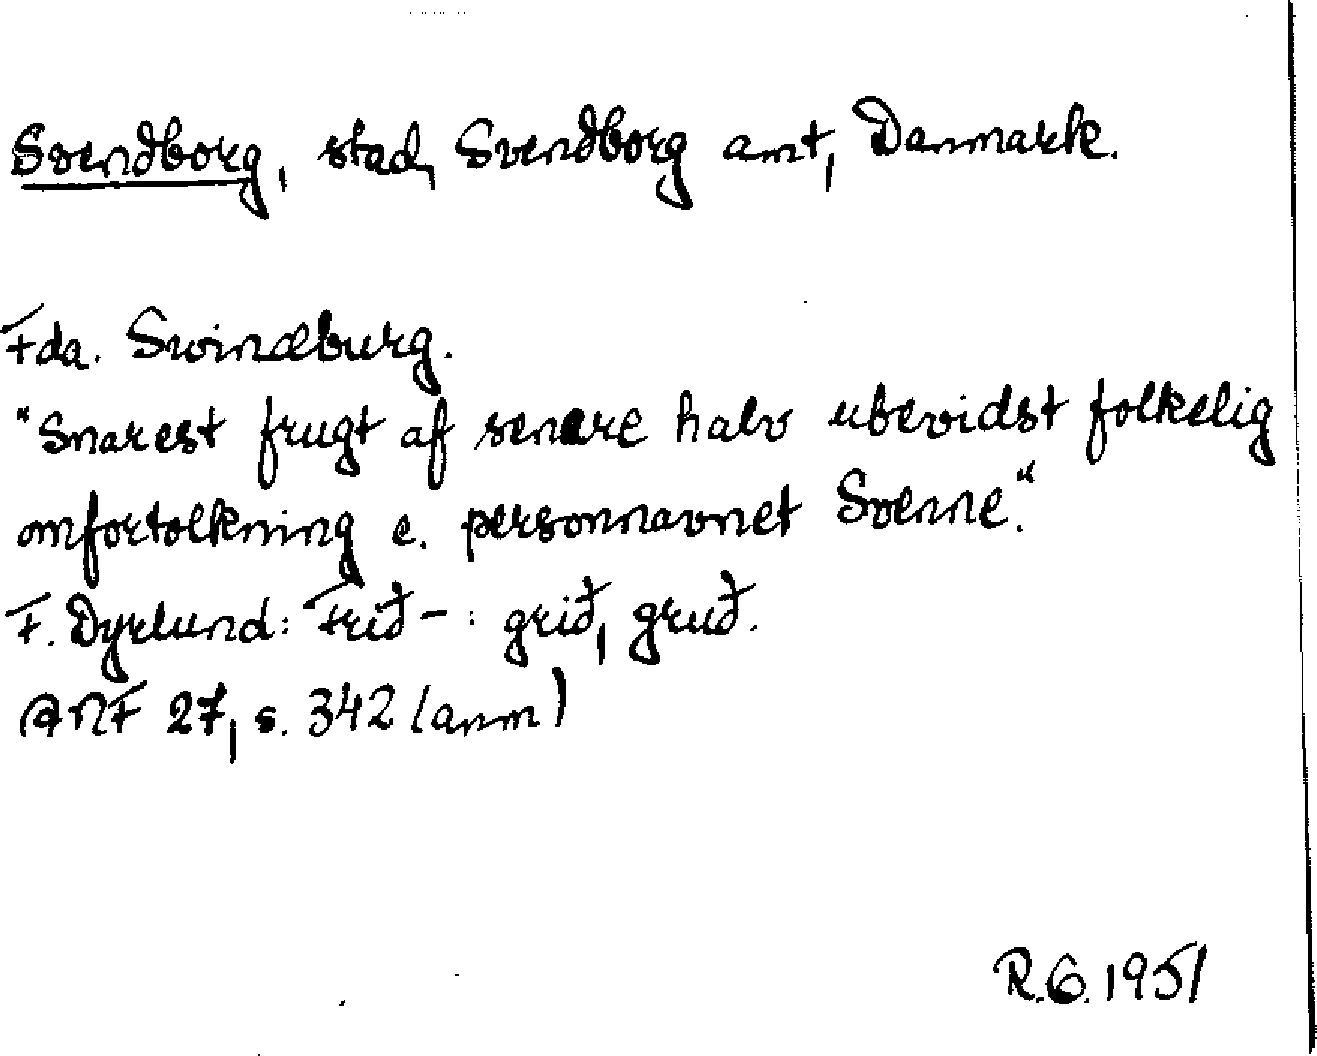 Svendborg, stad, Svendborg amt, Danmark.
Fda. Swinæburg.
"Snarest frugt af senere halv ubevidst folkelig
omfortolkning e. personnavnet Svenne."
F. Dyrlund: Frið- : grið, gruð.
ANF 27, s. 342 (anm)
R.G. 1951